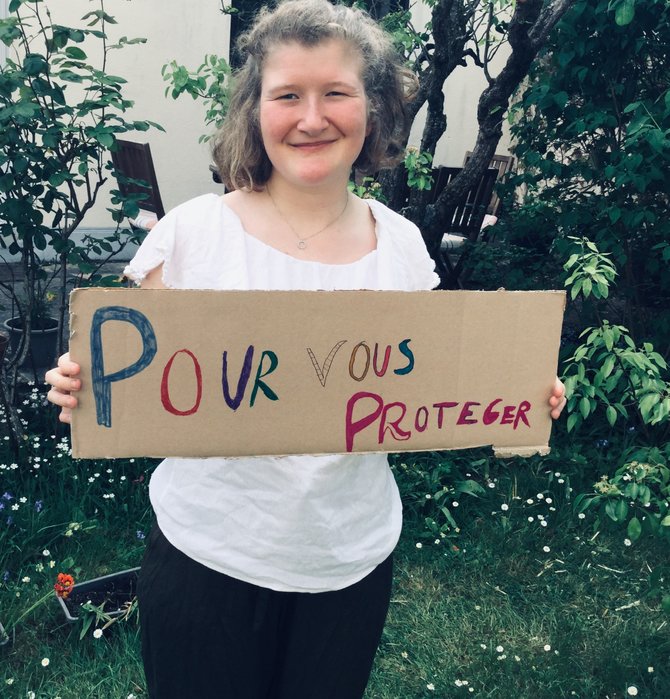 POUR VOUS
PROTEGER